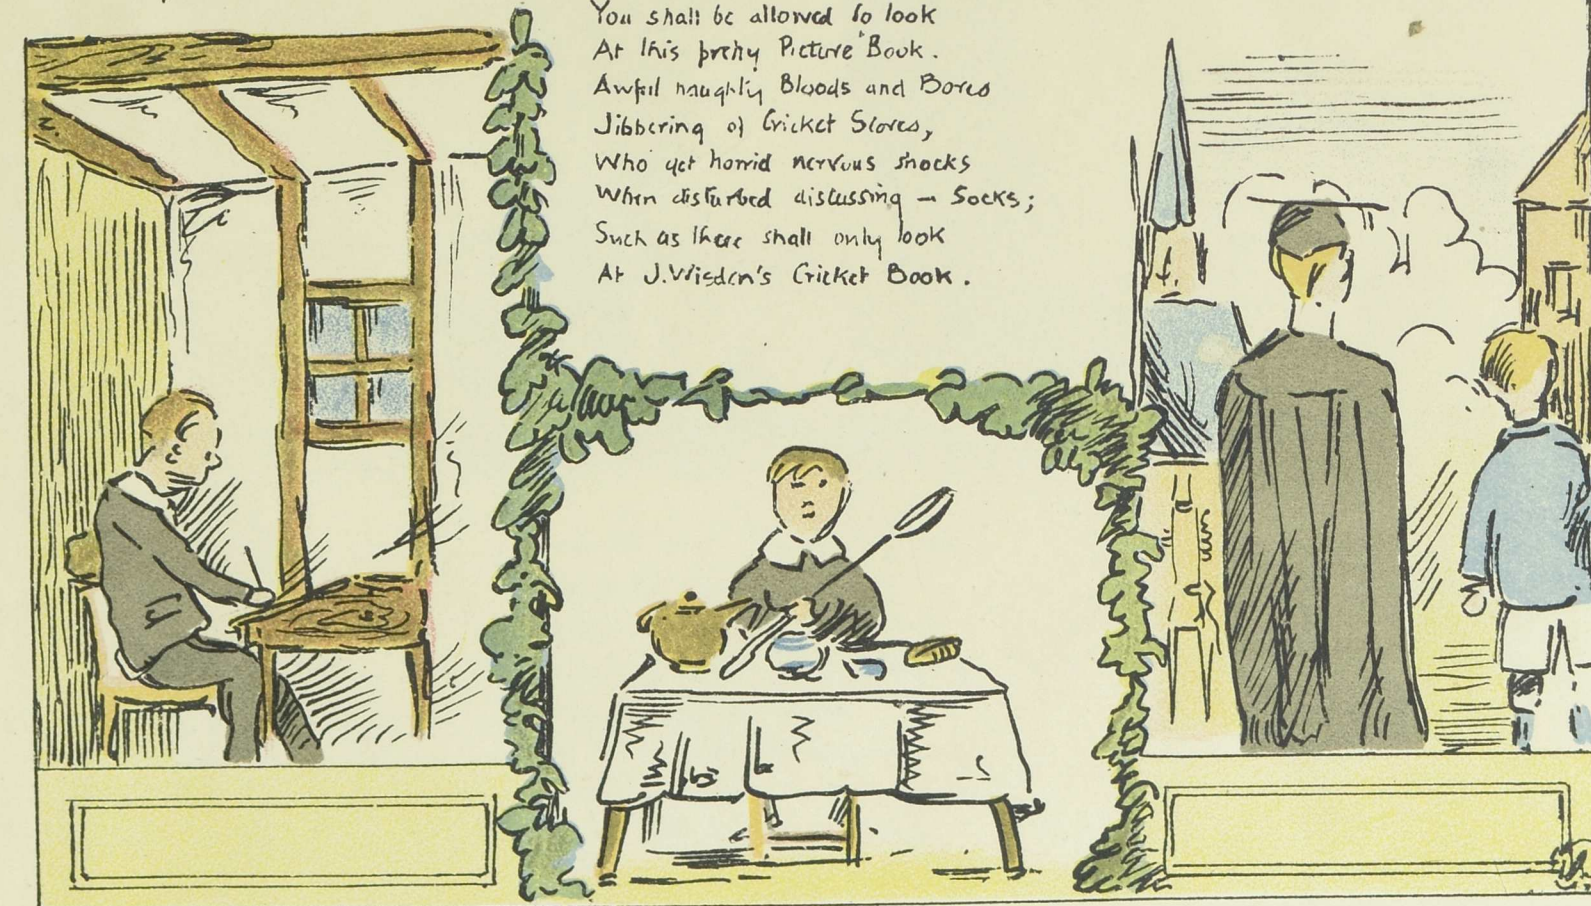 You shall be allowed to look
At this pretty Picture Book.
Awful naughty Bloods and Bores
Jibbering of Cricket Scores,
Who get horrid nervous shocks
When disturbed discussing — Socks;
Such as these shall only look
At J. Wisden's Cricket Book.